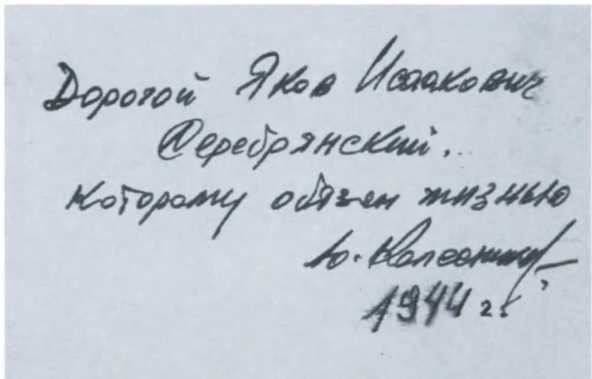 Дорогой Яков Исаакович
Серебрянский.
которому обязан жизнью
Ю. Колесников
1944 г.